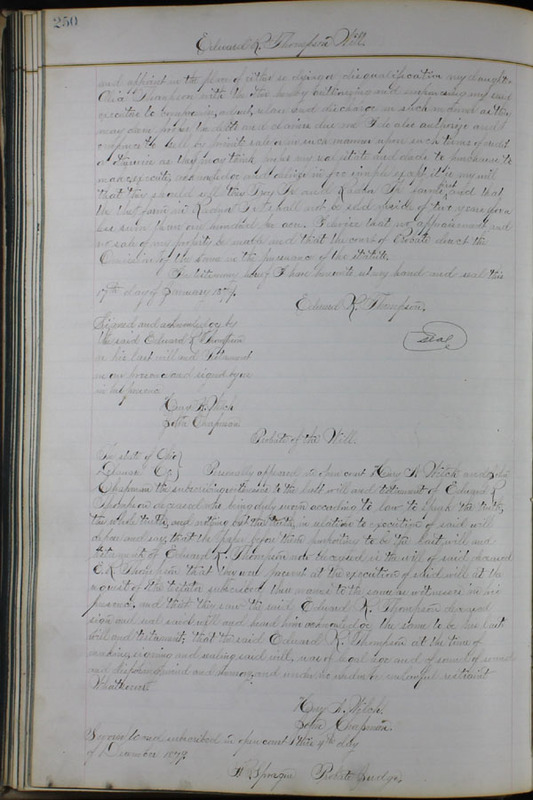 250
Edward R. Thompson Will.
and appoint in the place of either so dying or disqualification my daughter
Thompson with the like hereby authorizing and empowering my said
executor to compromise, adjust, release and discharge in such manner as they
may deem proper the debts and claims due me I do also authorize and
empower to sell by private sale or in such manner upon such terms of credit
or otherwise as they may think proper any real estate and deeds to purchasers to
make execute acknowledge and deliver in fee simple except it is my will
that they should sell the Farm and that
the last farm in shall not be sold inside of two years for a
less sum than one hundred per acre. I desire that no appraisement and
no sale of my property be made and that the court of Probate direct the
Omission of the same in the pursuance of the statute.
In testimony whereof I have hereunto set my hand and seal this
17th day of January 1879.
Edward R. Thompson.
Seal
Signed and acknowledged by
the said Edward R. Thompson
as his last will and Testament
in our presence and signed by us
in his presence
Henry A. Welch
Chapman
Probate of the Will.
The State of Ohio
Co. Personally appeared in open court Henry A. Welch and
Chapman the subscribing witnesses to the last will and testament of Edward R
Thompson deceased who being duly sworn according to law to speak the truth,
the whole truth, and nothing but the truth, in relation to execution of said will
depose and say; that the paper before them purporting to be the last will and
testament of Edward R. Thompson now deceased is the will of said deceased
E. R. Thompson that they were present at the execution of said will at the
request of the testator subscribed their names to the same as witnesses in his
presence, and that they saw the said Edward R. Thompson deceased
sign and seal said will and heard him acknowledge the same to be his last
will and testament; that the said Edward R. Thompson at the time of
making, signing and sealing said will, was of legal age and of sound
and disposing mind and memory, and under no undue or unlawful restraint
Whatsoever.
Henry A. Welch.
Chapman.
Sworn to and subscribed in open court this 9th day
of December 1879.
Probate Judge.